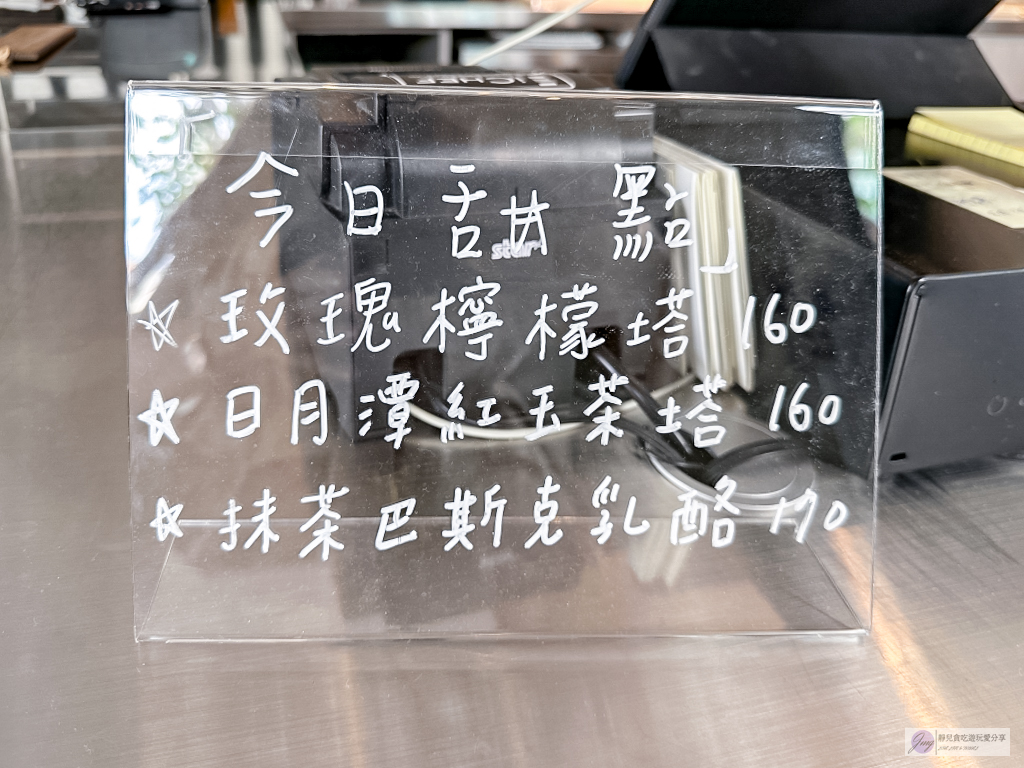 ICHEF
今日甜點
star
☆ 玫瑰檸檬塔 160
☆ 日月潭紅玉茶塔 160
☆ 抹茶巴斯克乳酪 170
靜兒貪吃遊玩愛分享